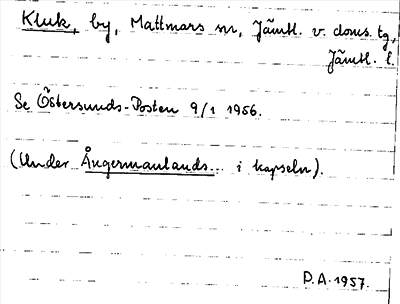 Kluk, by, Mattmars sn, Jämtl. v. doms. tg,
Jämtl. l.
Se Östersunds-Posten 9/1 1956.
(Under Ångermanlands... i kapseln).
D.A. 1957.